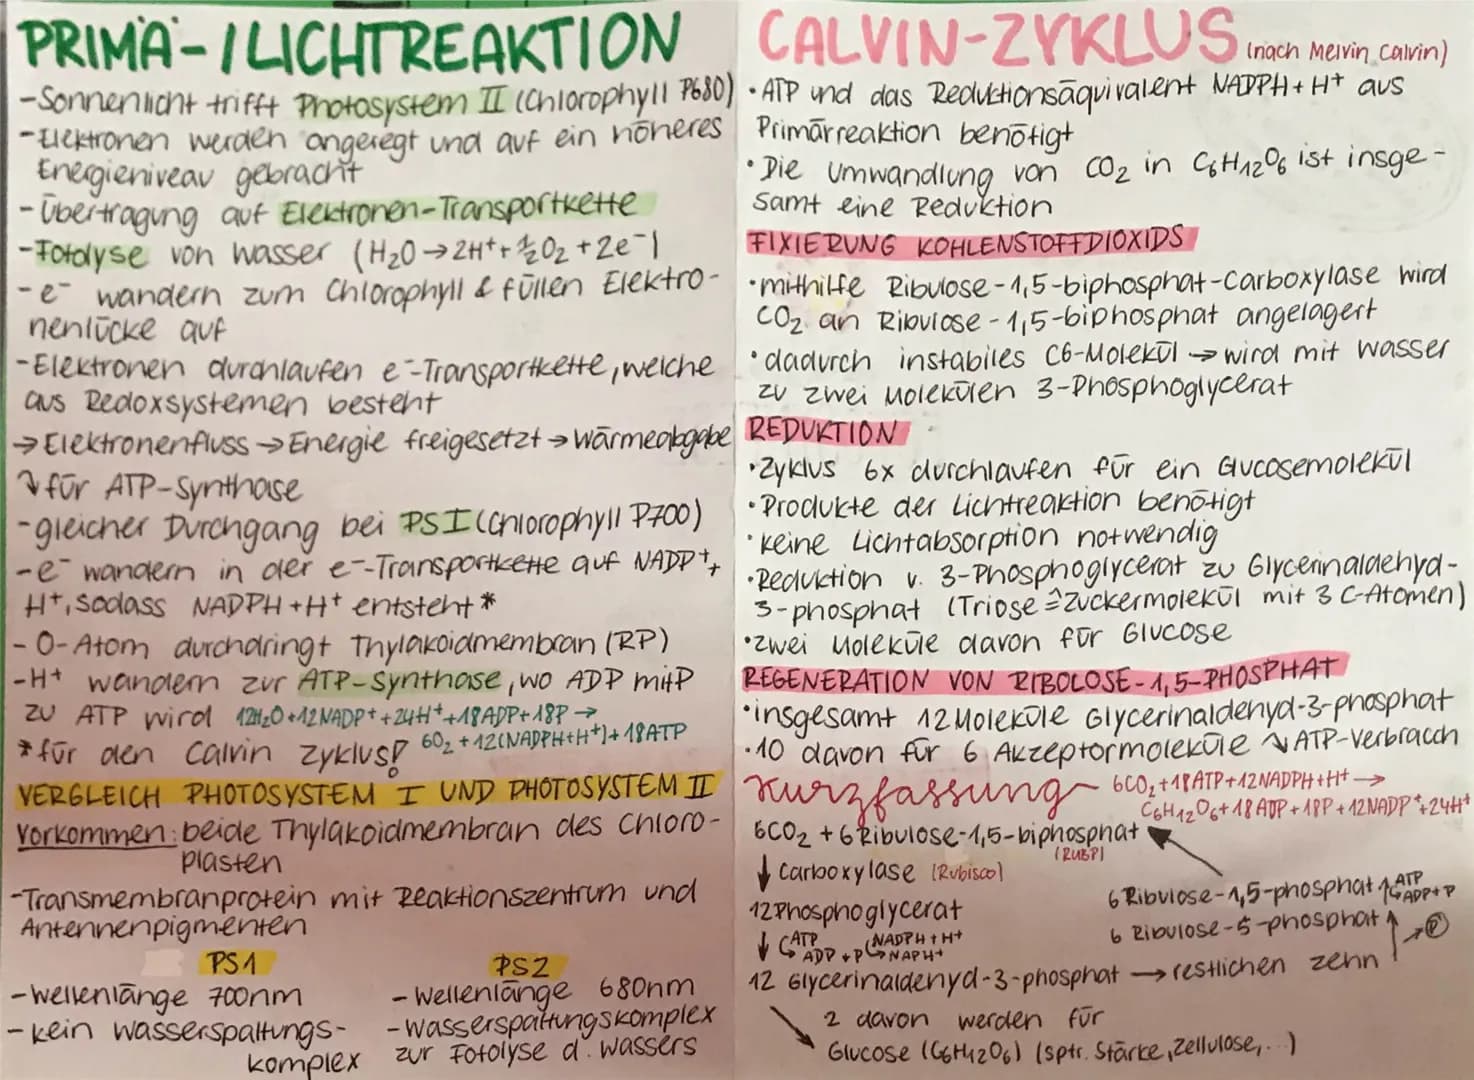 PRIMÄ-/LICHTREAKTION
-Sonnenlicht trifft Photosystem II (Chlorophyll P680)
-Elektronen werden angeregt und auf ein höheres
Energieniveau gebracht
-Übertragung auf Elektronen-Transportkette
-Fotolyse von Wasser (H₂O→2H⁺+½O₂+2e⁻)
-e⁻ wandern zum Chlorophyll & füllen Elektro-
nenlücke auf
-Elektronen durchlaufen e⁻-Transportkette, welche
aus Redoxsystemen besteht
→Elektronenfluss→Energie freigesetzt→Wärmeabgabe
↴ für ATP-Synthase
-gleicher Durchgang bei PSI (Chlorophyll P700)
-e⁻ wandern in der e⁻-Transportkette auf NADP⁺+
H⁺, sodass NADPH+H⁺ entsteht *
- O-Atom durchdringt Thylakoidmembran (RP)
-H⁺ wandern zur ATP-Synthase, wo ADP mit P
zu ATP wird 12H₂O+12NADP⁺+24H⁺+18ADP+18P→
*für den Calvin Zyklus! 6O₂+12(NADPH+H⁺)+18ATP
VERGLEICH PHOTOSYSTEM I UND PHOTOSYSTEM II
Vorkommen: beide Thylakoidmembran des Chloro-
plasten
-Transmembranprotein mit Reaktionszentrum und
Antennenpigmenten
PS1
-Wellenlänge 700nm
-kein Wasserspaltungs-
komplex
PS2
-Wellenlänge 680nm
-Wasserspaltungskomplex
zur Fotolyse d. Wassers
CALVIN-ZYKLUS (nach Melvin Calvin)
•ATP und das Reduktionsäquivalent NADPH+H⁺ aus
Primärreaktion benötigt
•Die Umwandlung von CO₂ in C₆H₁₂O₆ ist insge-
samt eine Reduktion
FIXIERUNG KOHLENSTOFFDIOXIDS
•mithilfe Ribulose-1,5-biphosphat-Carboxylase wird
CO₂ an Ribulose-1,5-biphosphat angelagert
•dadurch instabiles C6-Molekül→wird mit Wasser
zu zwei Molekülen 3-Phosphoglycerat
REDUKTION
•Zyklus 6x durchlaufen für ein Glucosemolekül
•Produkte der Lichtreaktion benötigt
•keine Lichtabsorption notwendig
•Reduktion v. 3-Phosphoglycerat zu Glycerinaldehyd-
3-phosphat (Triose≙Zuckermolekül mit 3 C-Atomen)
•zwei Moleküle davon für Glucose
REGENERATION VON RIBOLOSE-1,5-PHOSPHAT
•insgesamt 12 Moleküle Glycerinaldehyd-3-phosphat
•10 davon für 6 Akzeptormoleküle ↴ ATP-Verbrauch
Kurzfassung 6CO₂+18ATP+12NADPH+H⁺→
C₆H₁₂O₆+18ADP+18P+12NADP⁺+24H⁺
6CO₂ + 6 Ribulose-1,5-biphosphat
(RUBP)
↓ Carboxylase (Rubisco)
12 Phosphoglycerat
↓ ATP NADPH+H⁺
ADP+P NAPH⁺
12 Glycerinaldehyd-3-phosphat → restlichen zehn
6 Ribulose-5-phosphat ↑ → P
6 Ribulose-1,5-phosphat ATP
ADP+P
2 davon werden für
Glucose (C₆H₁₂O₆) (sptr. Stärke, Zellulose,...)